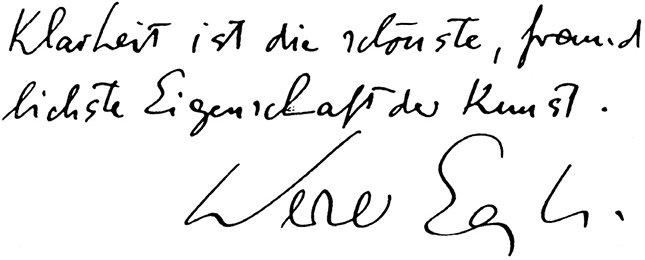 Klarheit ist die schönste, freund
lichste Eigenschaft der Kunst.
Werner Egk.